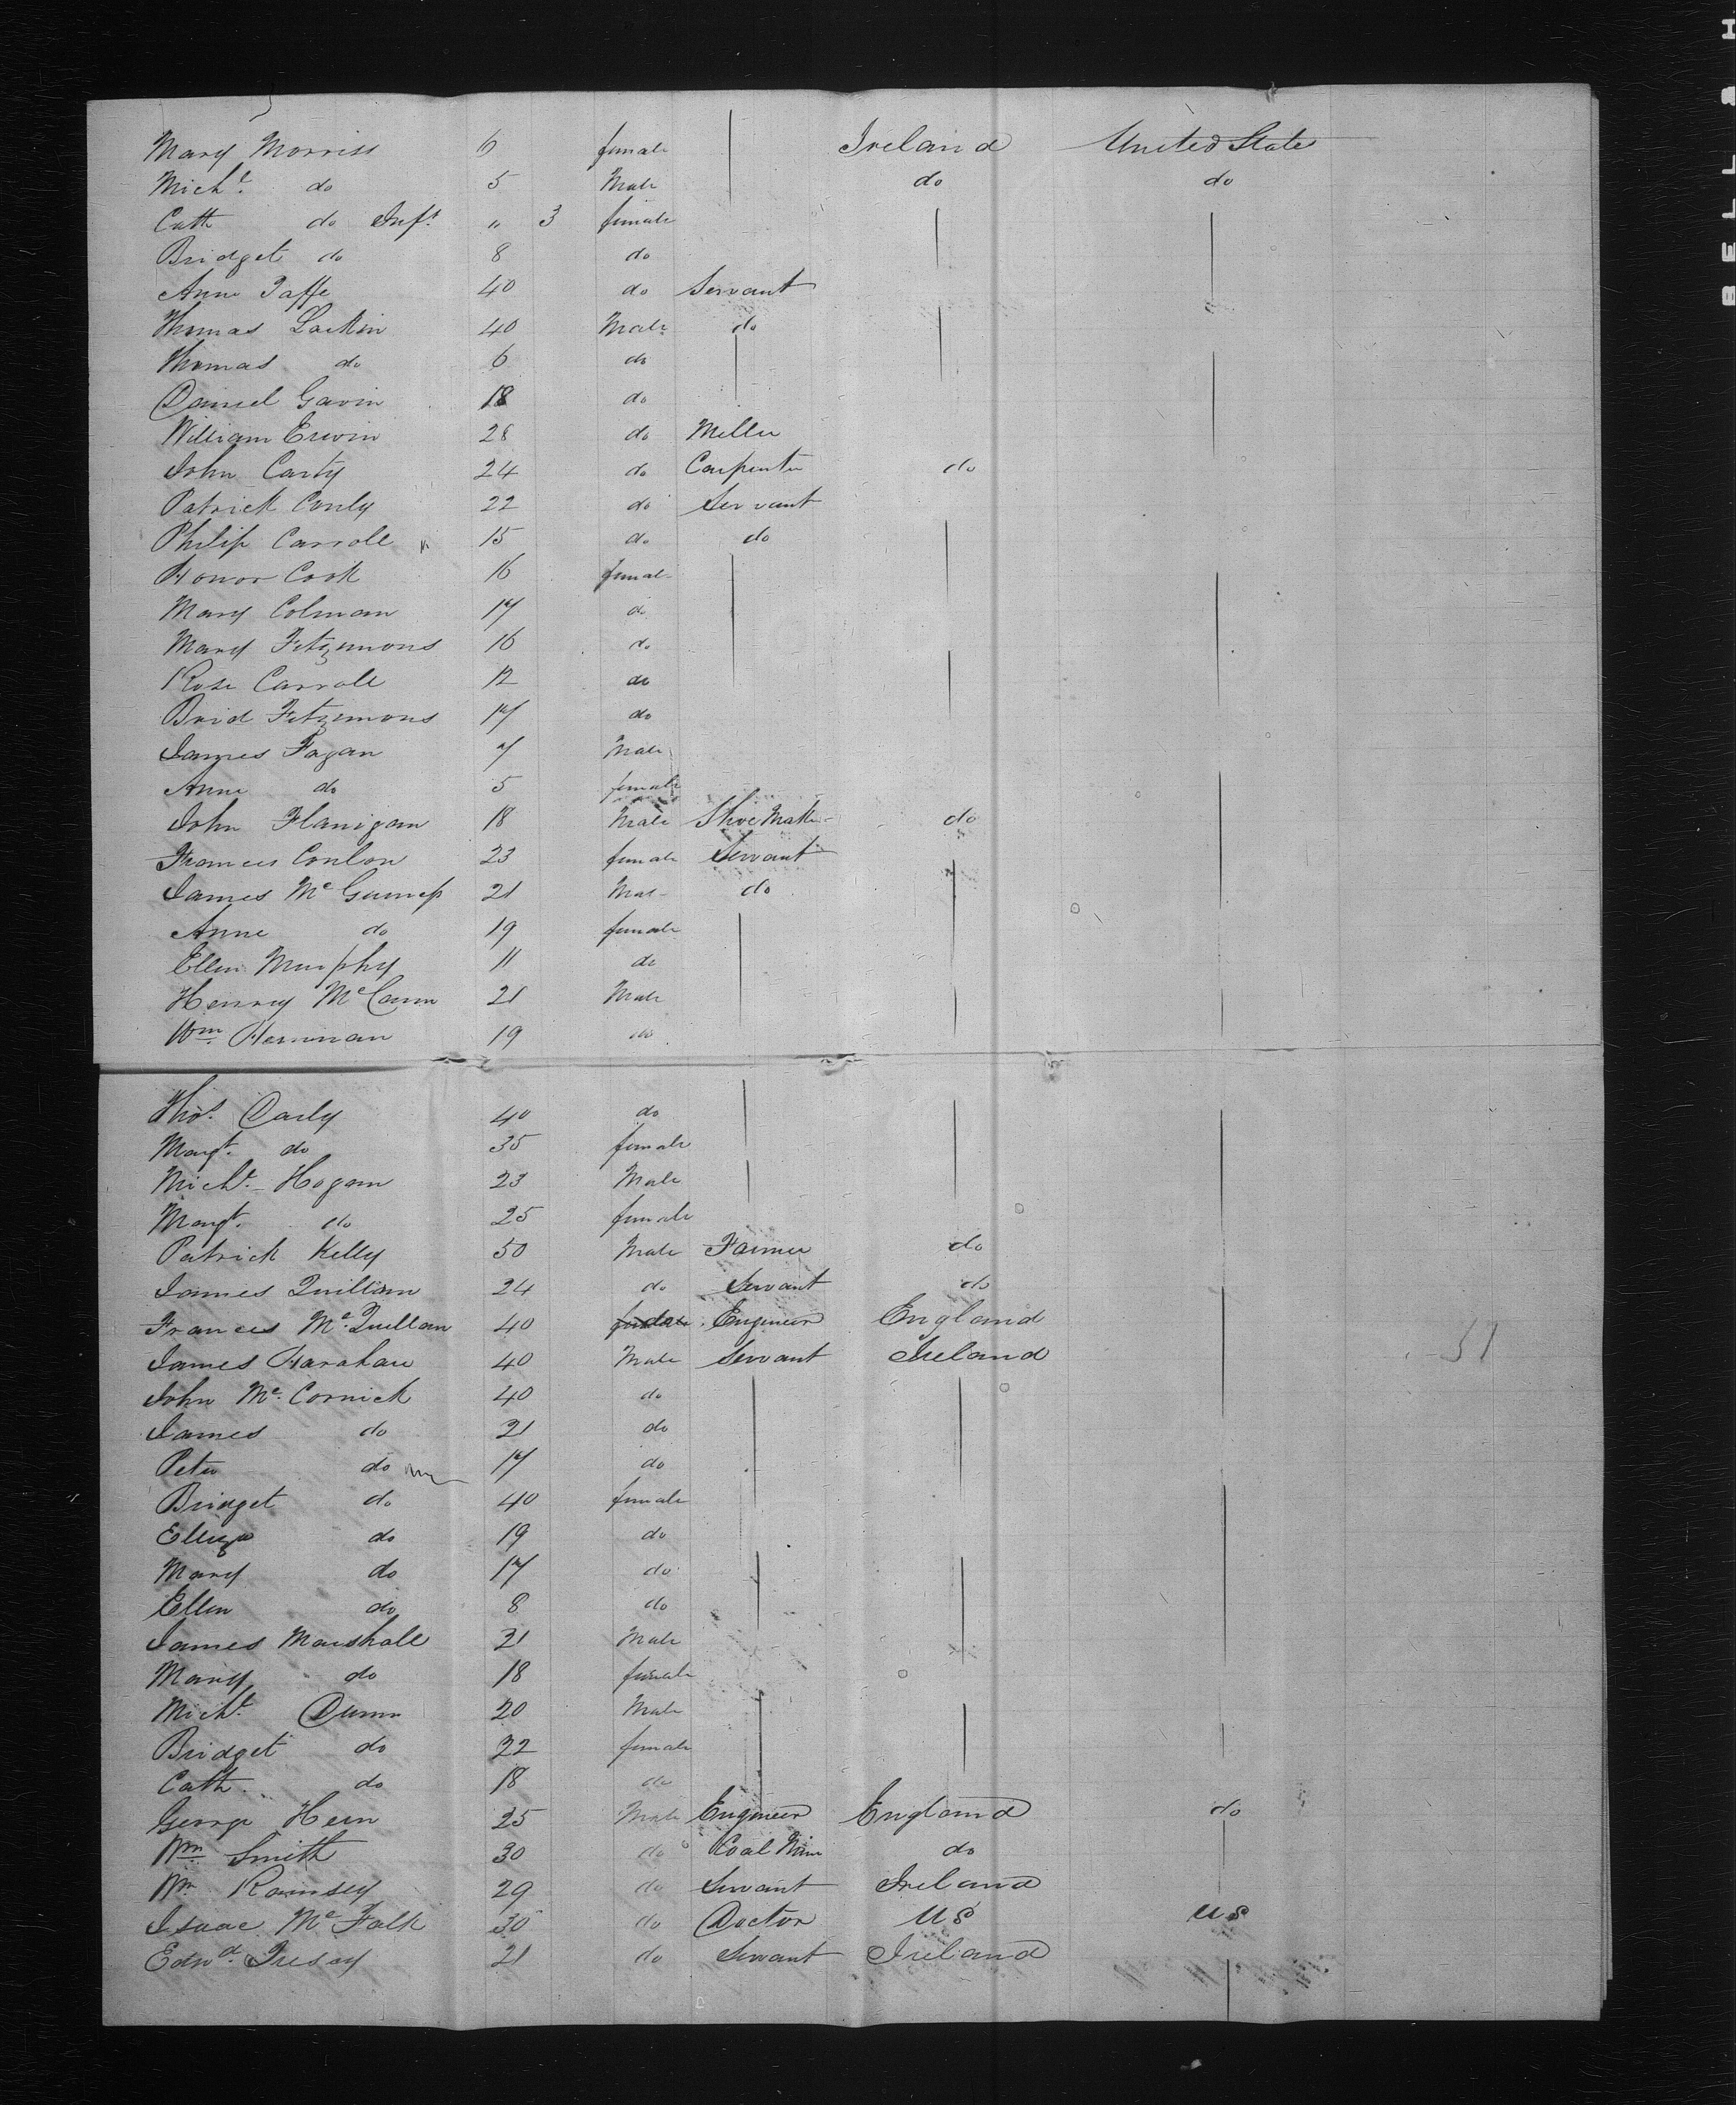 Mary Morriss 6 female Ireland United State
Micht. do 5 Male do do
Cath do Inft. " 3 female
Bridget do 8 do
Anne Taffe 40 do Servant
Thomas Larkin 40 Male do
Thomas do 6 do
Daniel Gavin 18 do
William Erwin 28 do Miller
John Carty 24 do Carpenter do
Patrick Conly 22 do Servant
Philip Carroll 15 do do
Honor Cook 16 female
Mary Colman 17 do
Mary Fitzemons 16 do
Rose Carroll 12 do
Brid Fitzemons 17 do
James Fagan 7 Male
Anne do 5 female
John Flanigan 18 Male Shoe Maker do
Frances Conlon 23 female Servant
James Mc 21 Male do
Anne do 19 female
Ellen Murphy 11 do
Henry McCann 21 Male
Wm. Hernnan 19 do
Thos. Daily 40 do
Margt. do 35 female
Micht. Hogan 23 Male
Margt. do 25 female
Patrick Kelly 50 Male Farmer do
James Quillian 24 do Servant do
Frances Mc.Quillan 40 female Engineer England
James Harahan 40 Male Servant Ireland 51
John Mc.Cornick 40 do
James do 21 do
Peter do 17 do
Bridget do 40 female
Elliza do 19 do
Mary do 17 do
Ellen do 8 do
James Marshall 21 Male
Mary do 18 female
Micht. Dunn 20 Male
Bridget do 22 female
Cath. do 18 do
George Hern 25 Male Engineer England do
Wm. Smith 30 do Coal do
Wm Ramsey 29 do Servant Ireland
Isaac McFalk 30 do Doctor US US
Edwd. 21 do Servant Ireland